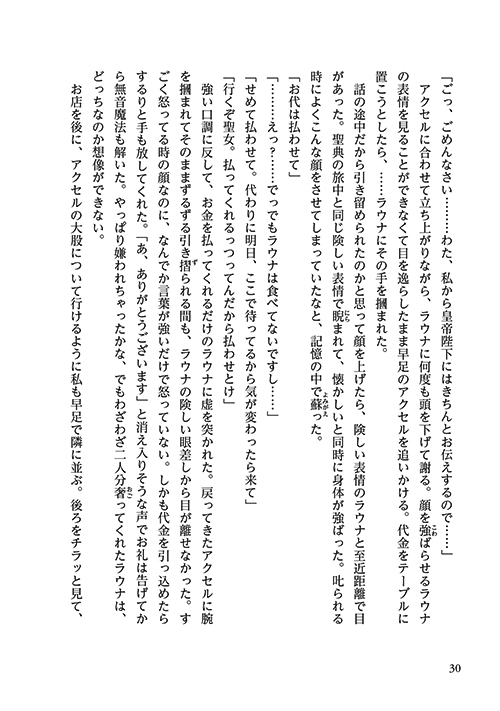 「ごっ、ごめんなさい………わた、私から皇帝陛下にはきちんとお伝えするので……」
アクセルに合わせて立ち上がりながら、ラウナに何度も頭を下げて謝る。顔を強ばらせるラウナ
の表情を見ることができなくて目を逸らしたまま早足のアクセルを追いかける。代金をテーブルに
置こうとしたら、……ラウナにその手を掴まれた。
話の途中だから引き留められたのかと思って顔を上げたら、険しい表情のラウナと至近距離で目
があった。聖典の旅中と同じ険しい表情で睨まれて、懐かしいと同時に身体が強ばった。叱られる
時によくこんな顔をさせてしまっていたなと、記憶の中で蘇った。
「お代は払わせて」
「………えっ？……でっでもラウナは食べてないですし……」
「せめて払わせて。代わりに明日、ここで待ってるから気が変わったら来て」
「行くぞ聖女。払ってくれるっつってんだから払わせとけ」
強い口調に反して、お金を払ってくれるだけのラウナに虚を突かれた。戻ってきたアクセルに腕
を掴まれてそのままずるずる引き摺られる間も、ラウナの険しい眼差しから目が離せなかった。す
ごく怒ってる時の顔なのに、なんでか言葉が強いだけで怒っていない。しかも代金を引っ込めたら
するりと手も放してくれた。「あ、ありがとうございます」と消え入りそうな声でお礼は告げてか
ら無音魔法も解いた。やっぱり嫌われちゃったかな、でもわざわざ二人分奢ってくれたラウナは、
どっちなのか想像ができない。
お店を後に、アクセルの大股について行けるように私も早足で隣に並ぶ。後ろをチラッと見て、
30